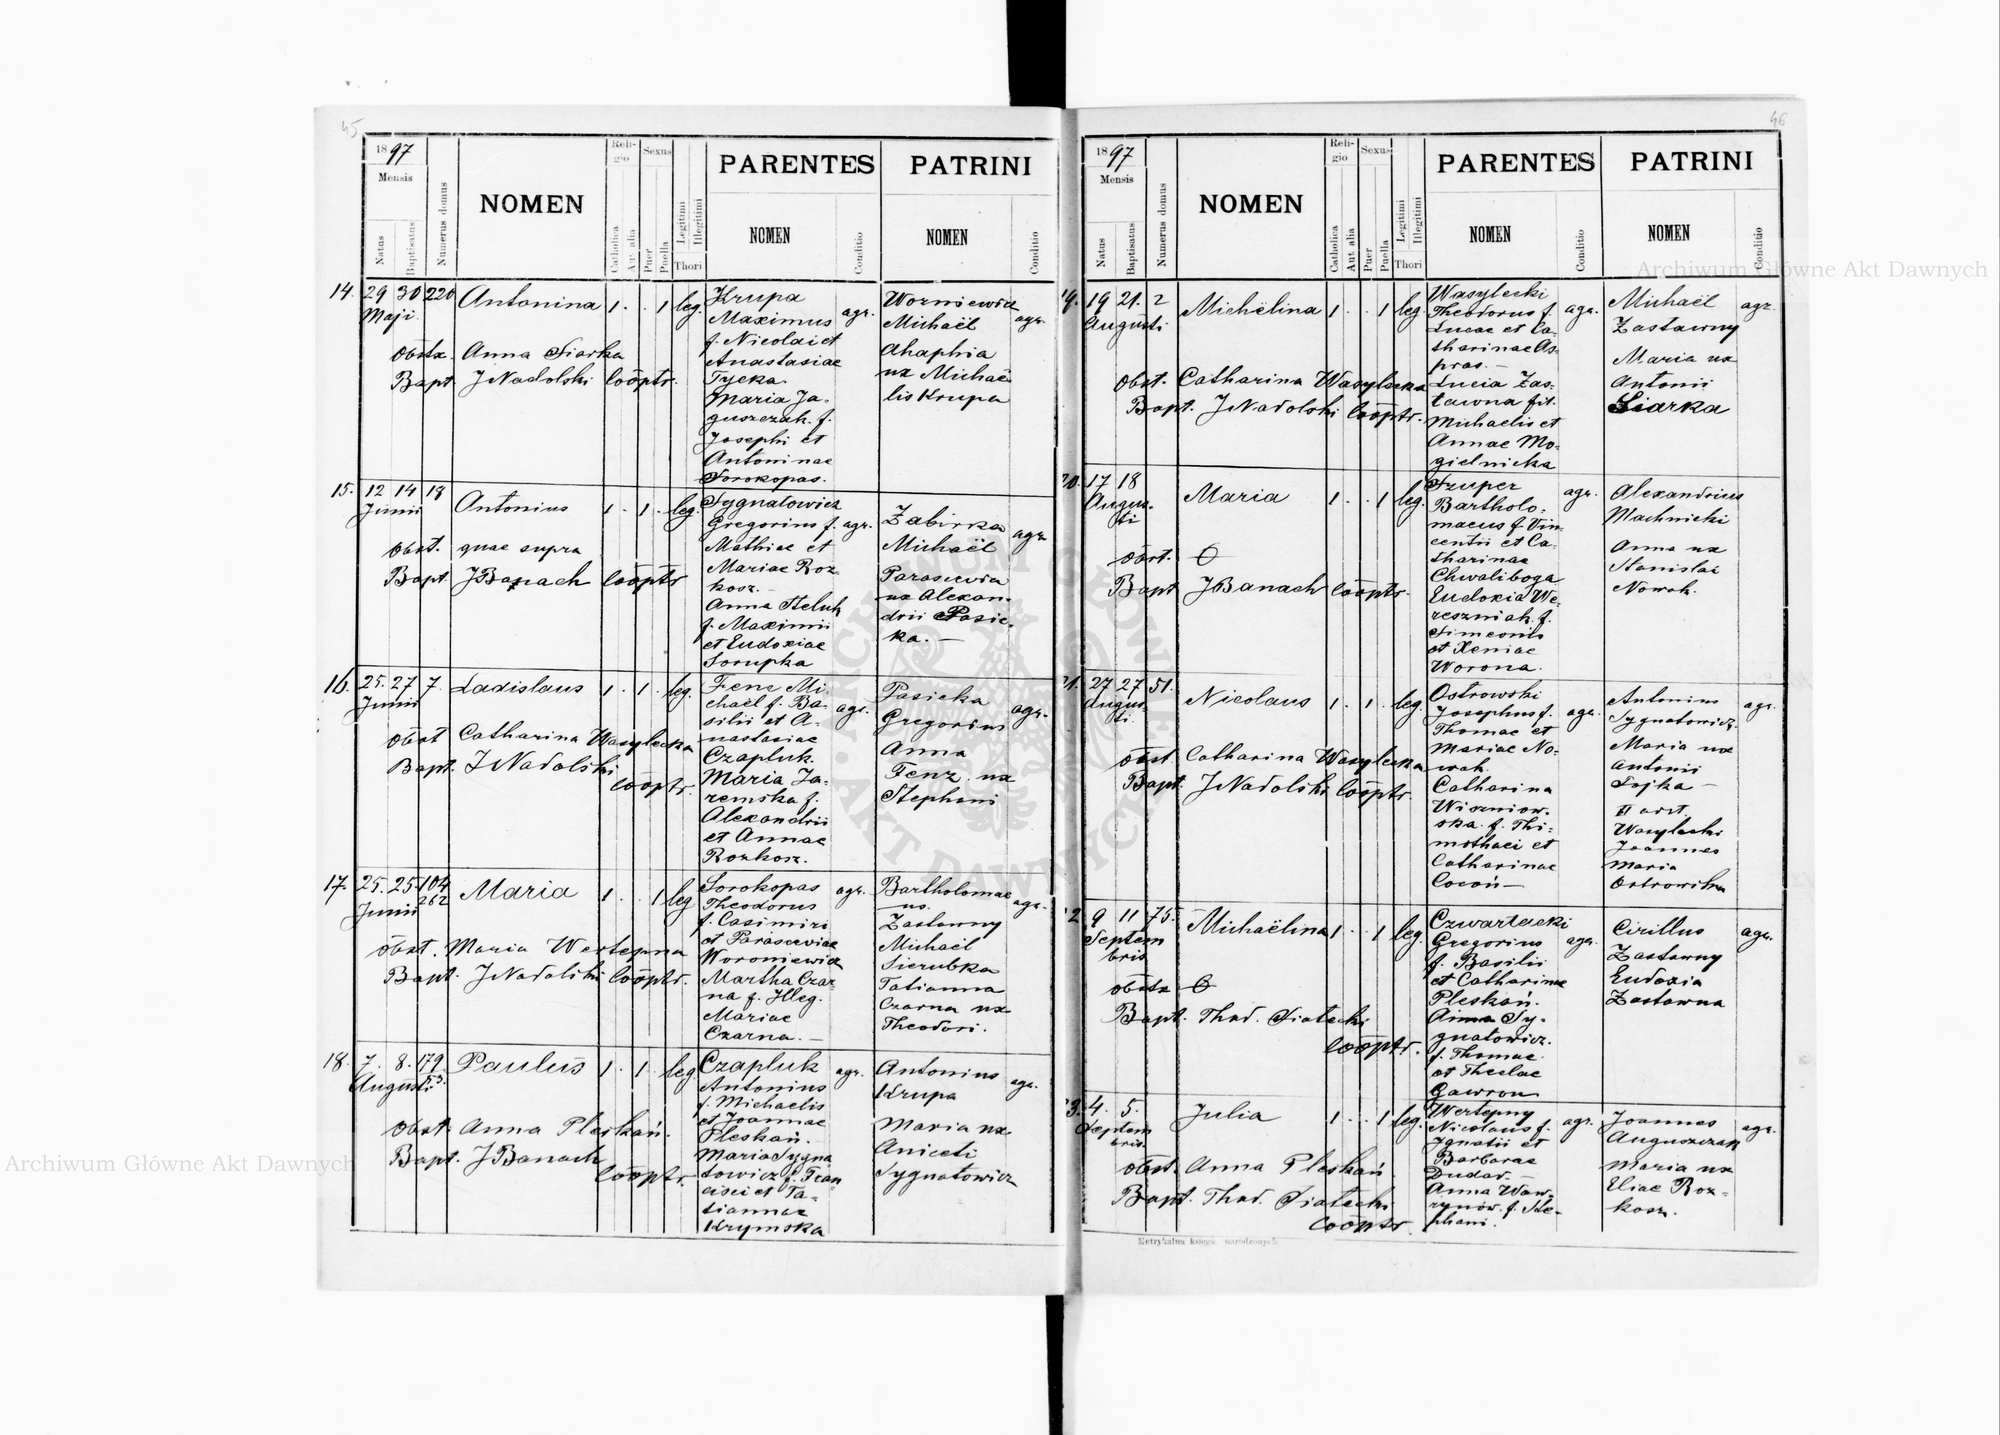 45
1897
Mensis
Natus
Baptisatus
Numerus domus
NOMEN
Religio
Catholica
Aut alia
Sexus
Puer
Puella
Legitimi
Illegitimi
Thori
PARENTES
NOMEN
Conditio
PATRINI
NOMEN
Conditio
14. 29 30 220 Antonina 1 . . 1 leg.
Maji
Obstx. Anna Siarka
Bapt. JNadolski coōptr.
Krupa
Maximus agr.
f. Nicolai et
Anastasiae
Tycka
Maria Ja-
guszczak f.
Josephi et
Antoninae
Sorokopas.
Worniewicz
Michaël agr.
Ahaphia
ux Michaë
lis Krupa
15. 12 14 18 Antonius 1 . 1 . leg.
Junii
Obst. quae supra
Bapt. JBanach coōptr
Sygnatowicz
Gregorius f. agr.
Mathiae et
Mariae Roz
kosz.
Anna Steluh
f. Maximii
et Eudoxiae
Sorupka
Zabirka
Michaël agr.
Parascevia
ux Alexan-
drii Pasie-
ka. —
16. 25. 27 7. Ladislaus 1 . 1 . leg.
Junii
Obst Catharina Wasylecka
Bapt. JNadolski
coōptr.
Fenc Mi-
chaël f. Ba- agr.
silii et A-
nastasiae
Czapluk.
Maria Ja-
remska f.
Alexandrii
et Annae
Rozkosz.
Pasieka
Gregorius agr.
Anna
Fenz ux
Stephani
17. 25. 25. 104 Maria 1 . . 1 leg
Junii 262
Obst. Maria Wertepna
Bapt. JNadolski coōptr.
Sorokopas agr.
Theodorus
f. Casimiri
et Parasceviae
Woroniewicz
Martha Czar-
na f. Illeg.
Mariae
Czarna. —
Bartholomae agr.
us.
Zastawny
Michaël
Sierubka
Tatianna
Czarna ux
Theodori.
18. 7. 8. 179. Paulus 1 . 1 . leg
Augusti 53.
Obst. Anna Pleskań.
Bapt. JBanach
coōptr.
Czapluk agr.
Antonius
f. Michaelis
et Joannae
Pleskań.
Maria Sygna
towicz f. Fran
cisci et Ta-
tiannae
Krymska
Antonius
Krupa agr.
Maria ux
Aniceti
Sygnatowicz
46
1897
Mensis
Natus
Baptisatus
Numerus domus
NOMEN
Religio
Catholica
Aut alia
Sexus
Puer
Puella
Legitimi
Illegitimi
Thori
PARENTES
NOMEN
Conditio
PATRINI
NOMEN
Conditio
9. 19 21. 2 Michëlina 1 . . 1 leg.
Augusti
Obst. Catharina Wasylecka
Bapt. JNadolski coōptr.
Wasylecki
Theodorus f. agr.
Lucae et Ca-
tharinae As-
pras. —
Lucia Zas-
tawna fil.
Michaelis et
Annae Mo-
gielnicka
Michaël agr.
Zastawny
Maria ux
Antonii
Siarka
20. 17 18 Maria 1 . . 1 leg.
Augus-
ti
Obst. O
Bapt JBanach coōptr.
Szuper agr.
Bartholo-
maeus f. Vin-
centii et Ca-
tharinae
Chwaliboga
Eudoxia We-
reszniak f.
Simeonis
et Xeniae
Worona.
Alexandrius
Machnicki
Anna ux
Stanislai
Nowak.
21. 27 27 51. Nicolaus 1 . 1 . leg.
Augus-
ti.
Obst. Catharina Wasylecka
Bapt. JNadolski coōptr.
Ostrowski
Josephus f. agr.
Thomae et
Mariae No-
wak.
Catharina
Wiszniow-
ska f. Thi-
mothaei et
Catharinae
Cocoń —
Antonius agr.
Sygnatowicz.
Maria uxe
Antonii
Sojka —
II asst.
Wasylecki
Joannes
Maria
Ostrowska
2 9 11 75. Michaëlina 1 . . 1 leg.
Septem
bris
Obstx O
Bapt. Thad. Siatecki
coōptr.
Czwartacki
Gregorius agr.
f. Basilii
et Catharinae
Pleskań.
Anna Sy-
gnatowicz.
f. Thomae
et Theclae
Gawron
Cirillus agr.
Zastawny
Eudoxia
Zastawna
3. 4. 5. Julia 1 . . 1 leg.
Septem
bris.
Obst. Anna Pleskań
Bapt. Thad. Siatecki
coōptr.
Wertepny
Nicolaus f. agr.
Ignatii et
Barbarae
Dudar. —
Anna Waw-
rynów. f. Ste-
phani.
Joannes agr.
Auguszczak
Maria ux
Eliae Roz-
kosz.
Metrykalna księga narodzonych
Archiwum Główne Akt Dawnych
Archiwum Główne Akt Dawnych
ARCHIWUM GŁÓWNE
AKT DAWNYCH